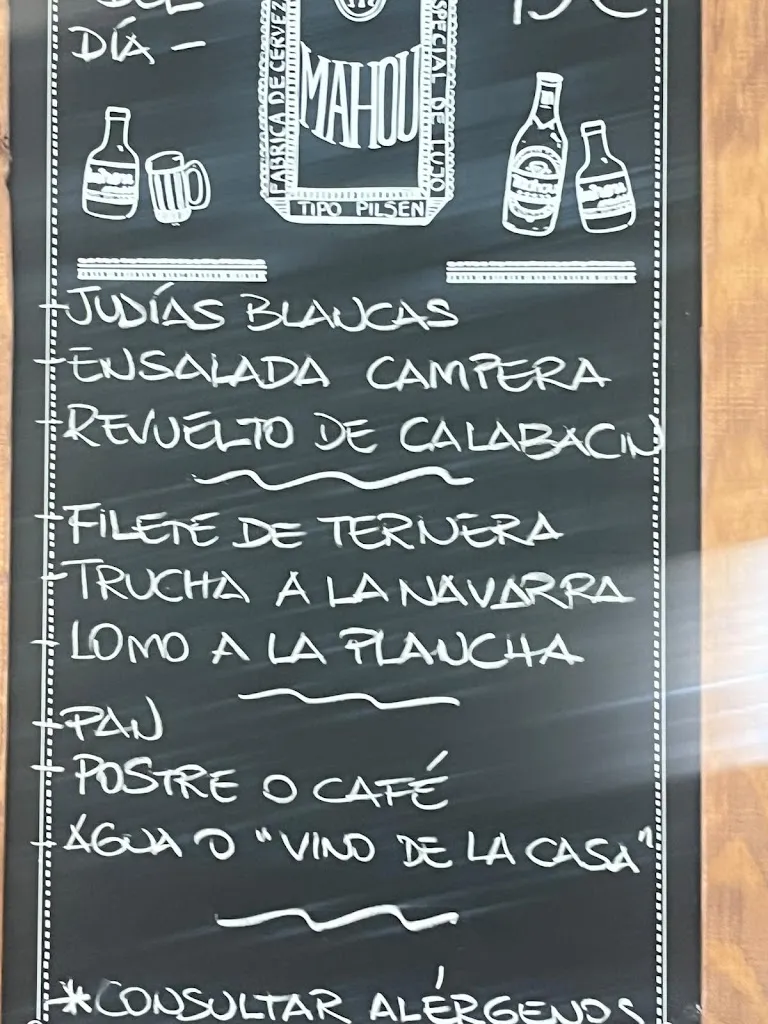 DEL
DÍA -
FABRICA DE CERVEZ
MAHOU
ESPECIAL DE LUJO
TIPO PILSEN
- JUDÍAS BLANCAS
- ENSALADA CAMPERA
- REVUELTO DE CALABACIN
- FILETE DE TERNERA
- TRUCHA A LA NAVARRA
- LOMO A LA PLANCHA
- PAN
- POSTRE O CAFÉ
- AGUA O "VINO DE LA CASA"
*CONSULTAR ALÉRGENOS